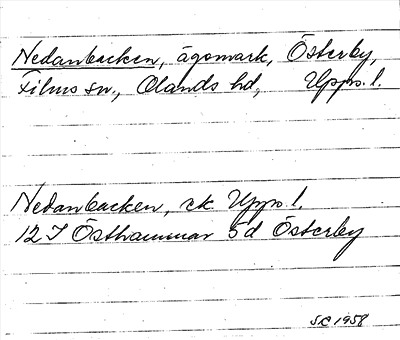 Nedanbacken, ägomark, Österby,
Films sn., Olands hd, Upps. l.
Nedanbacken, ek Upps. l.
12 I Östhammar 5d Österby
SE 1958